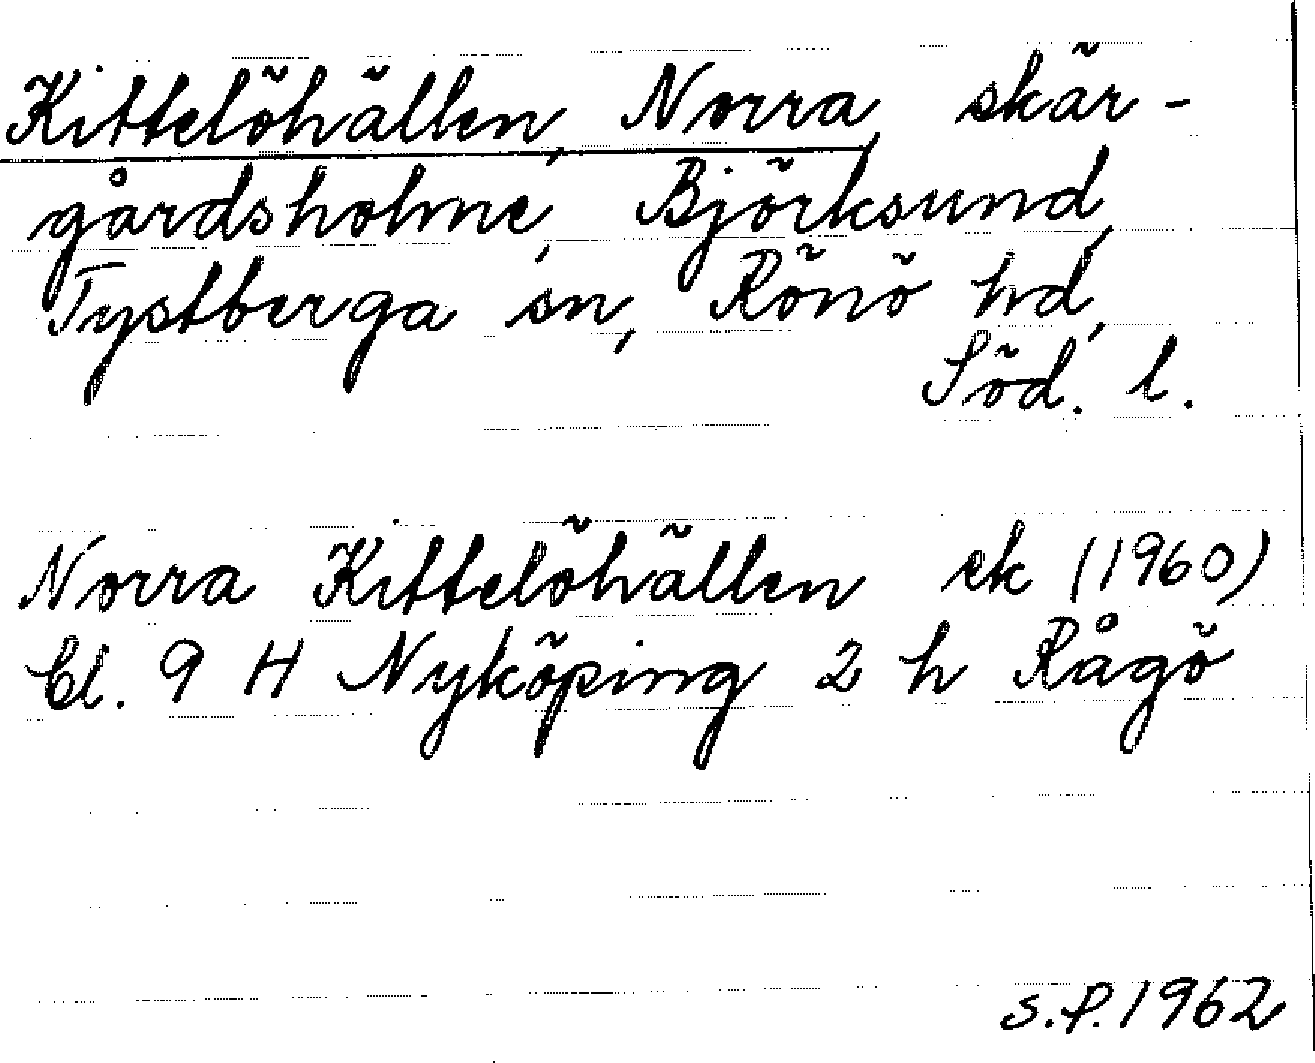 Kittelöhällen, Norra skär-
gårdsholme, Björksund,
Tystberga sn, Rönö hd,
Söd. l.
Norra Kittelöhällen ek (1960)
Bl. 9 H Nyköping 2 h Rågö
S.P. 1962